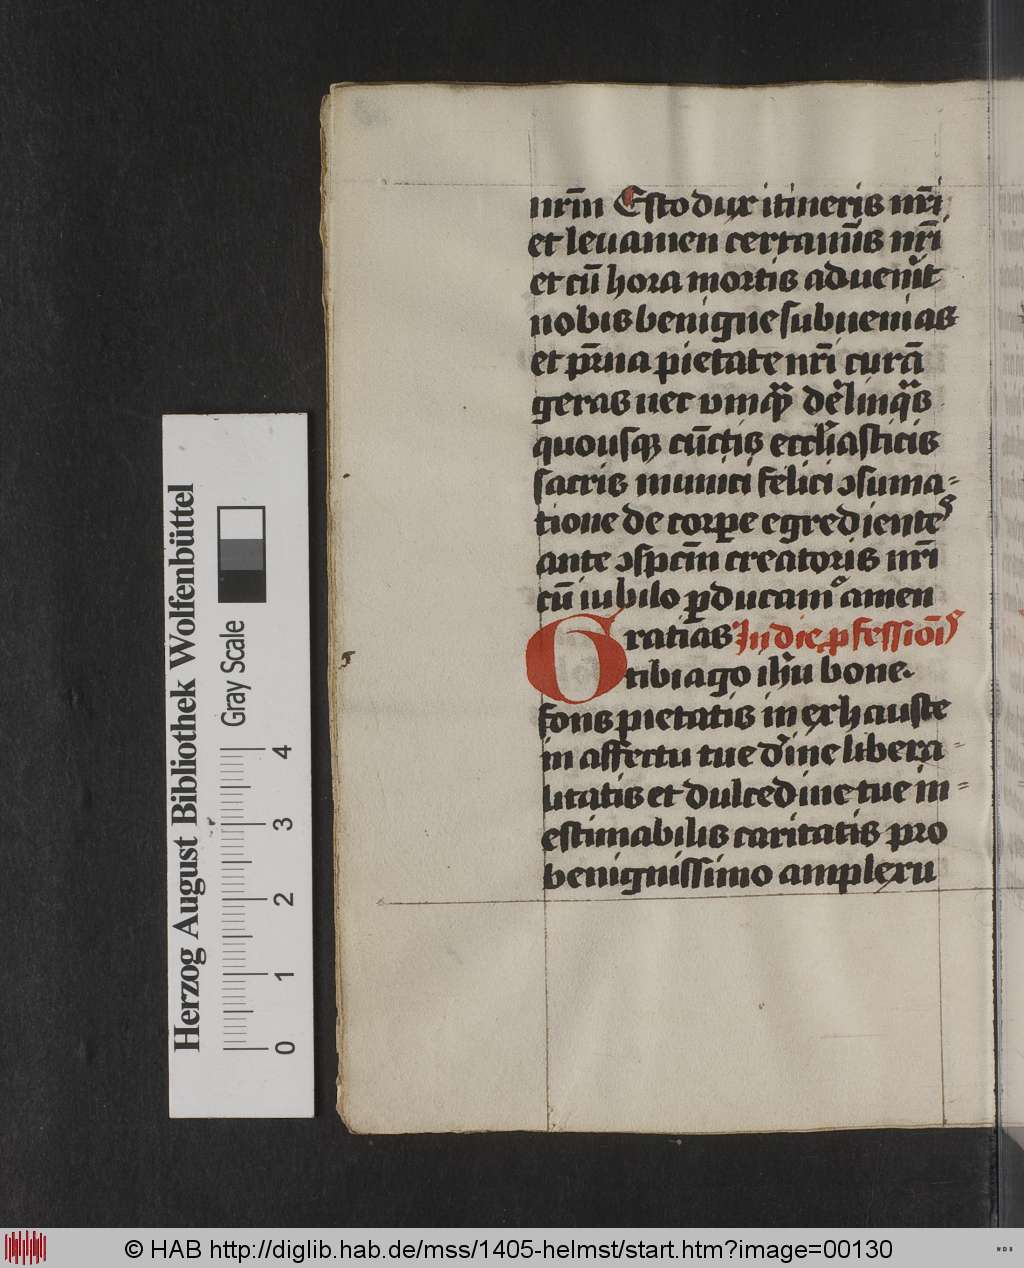 nr̄m Esto dux itineris nr̄i
et leuamen certaminis nr̄i
et cū hora mortis aduenīt
nobis benigne subuenias
et p̄rna pietate nr̄i curā
geras nec vmq̄ȝ delinq̄s
quousqȝ cūctis eccl̄iasticis
sacris muniti felici ꝯsuma-
tione de corpe egrediente᷒
ante ꝯspcm̄ creatoris nr̄i
cū iubilo ꝑducamꝰ amen
Gratias In die ꝓfessiōis
tibi ago ih̄u bone.
fons pietatis inexhauste
in affectu tue d'ine libera-
litatis et dulcedine tue in-
estimabilis caritatis pro
benignissimo amplexu
Herzog August Bibliothek Wolfenbüttel
Gray Scale
0 1 2 3 4
© HAB http://diglib.hab.de/mss/1405-helmst/start.htm?image=00130
WDB